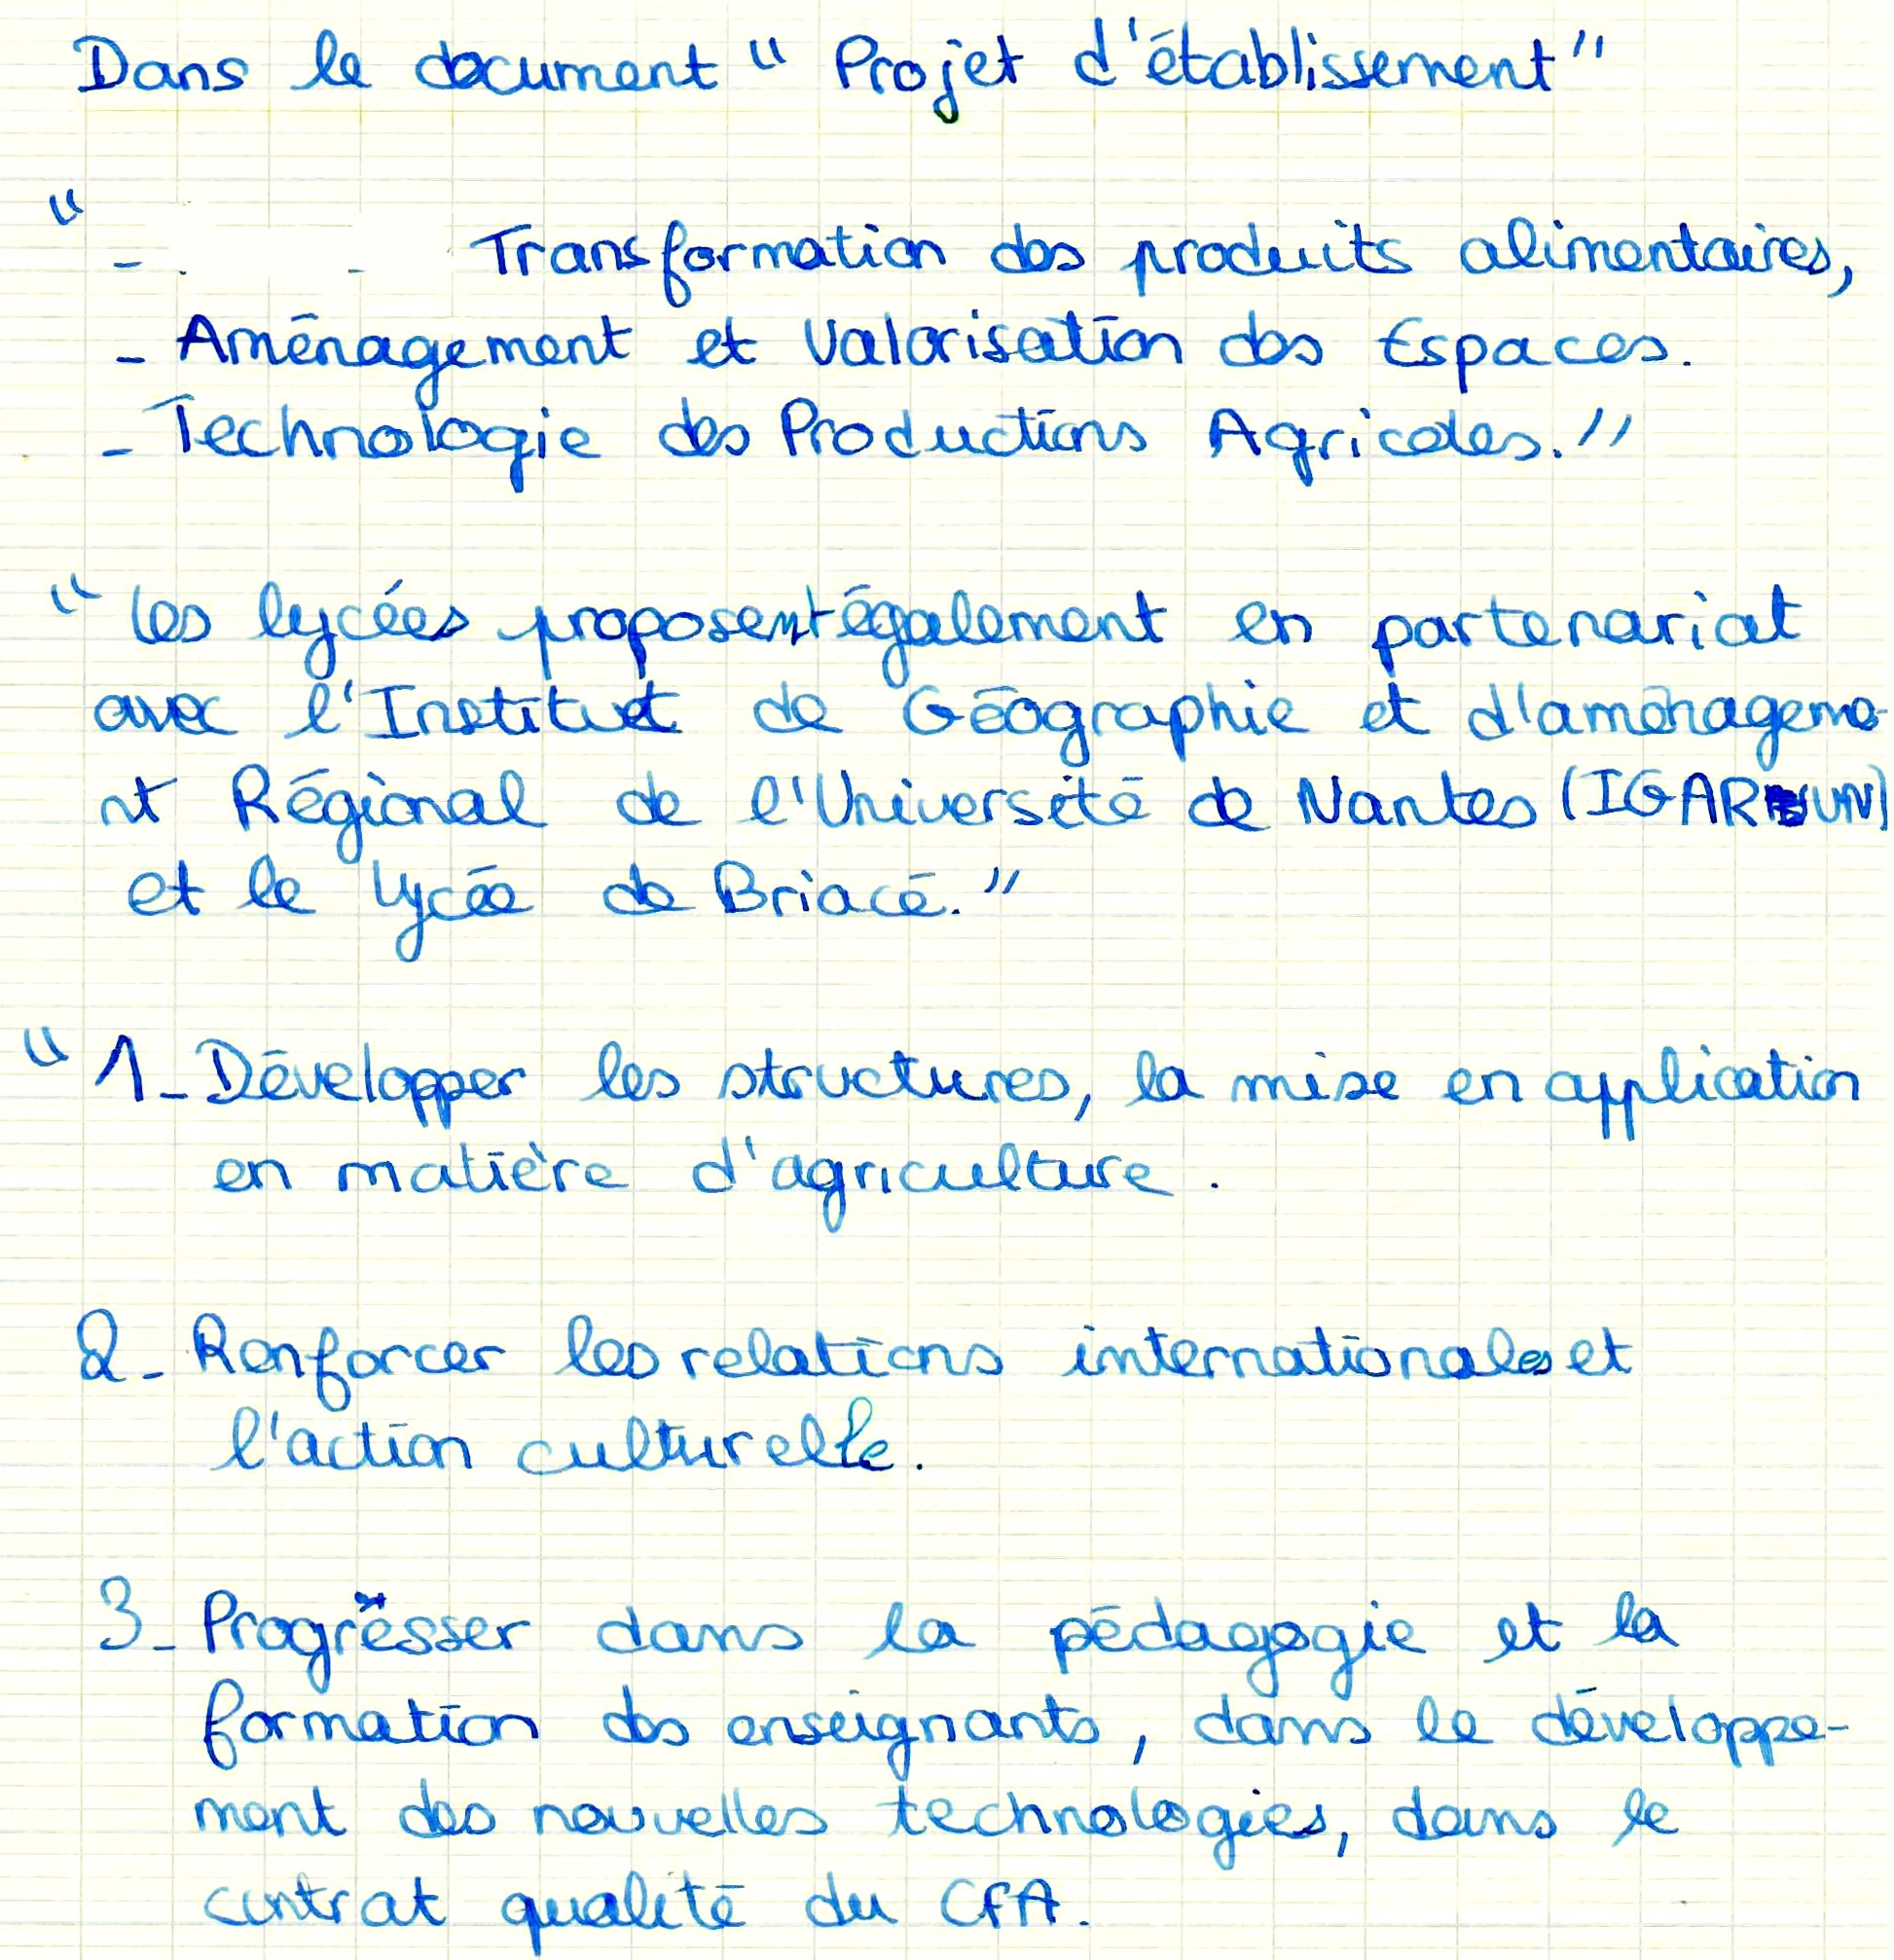 Dans le document " Projet d'établissement"
"
- Transformation des produits alimentaires,
- Aménagement et Valorisation des Espaces.
- Technologie des Productions Agricoles."
" Les lycées proposent également en partenariat
avec l'Institut de Géographie et d'aménageme-
nt Régional de l'Université de Nantes (IGARUN)
et le Lycée de Briacé."
" 1- Développer les structures, la mise en application
en matière d'agriculture.
2- Renforcer les relations internationales et
l'action culturelle.
3- Progresser dans la pédagogie et la
formation des enseignants, dans le développe-
ment des nouvelles technologies, dans le
contrat qualité du CFA.